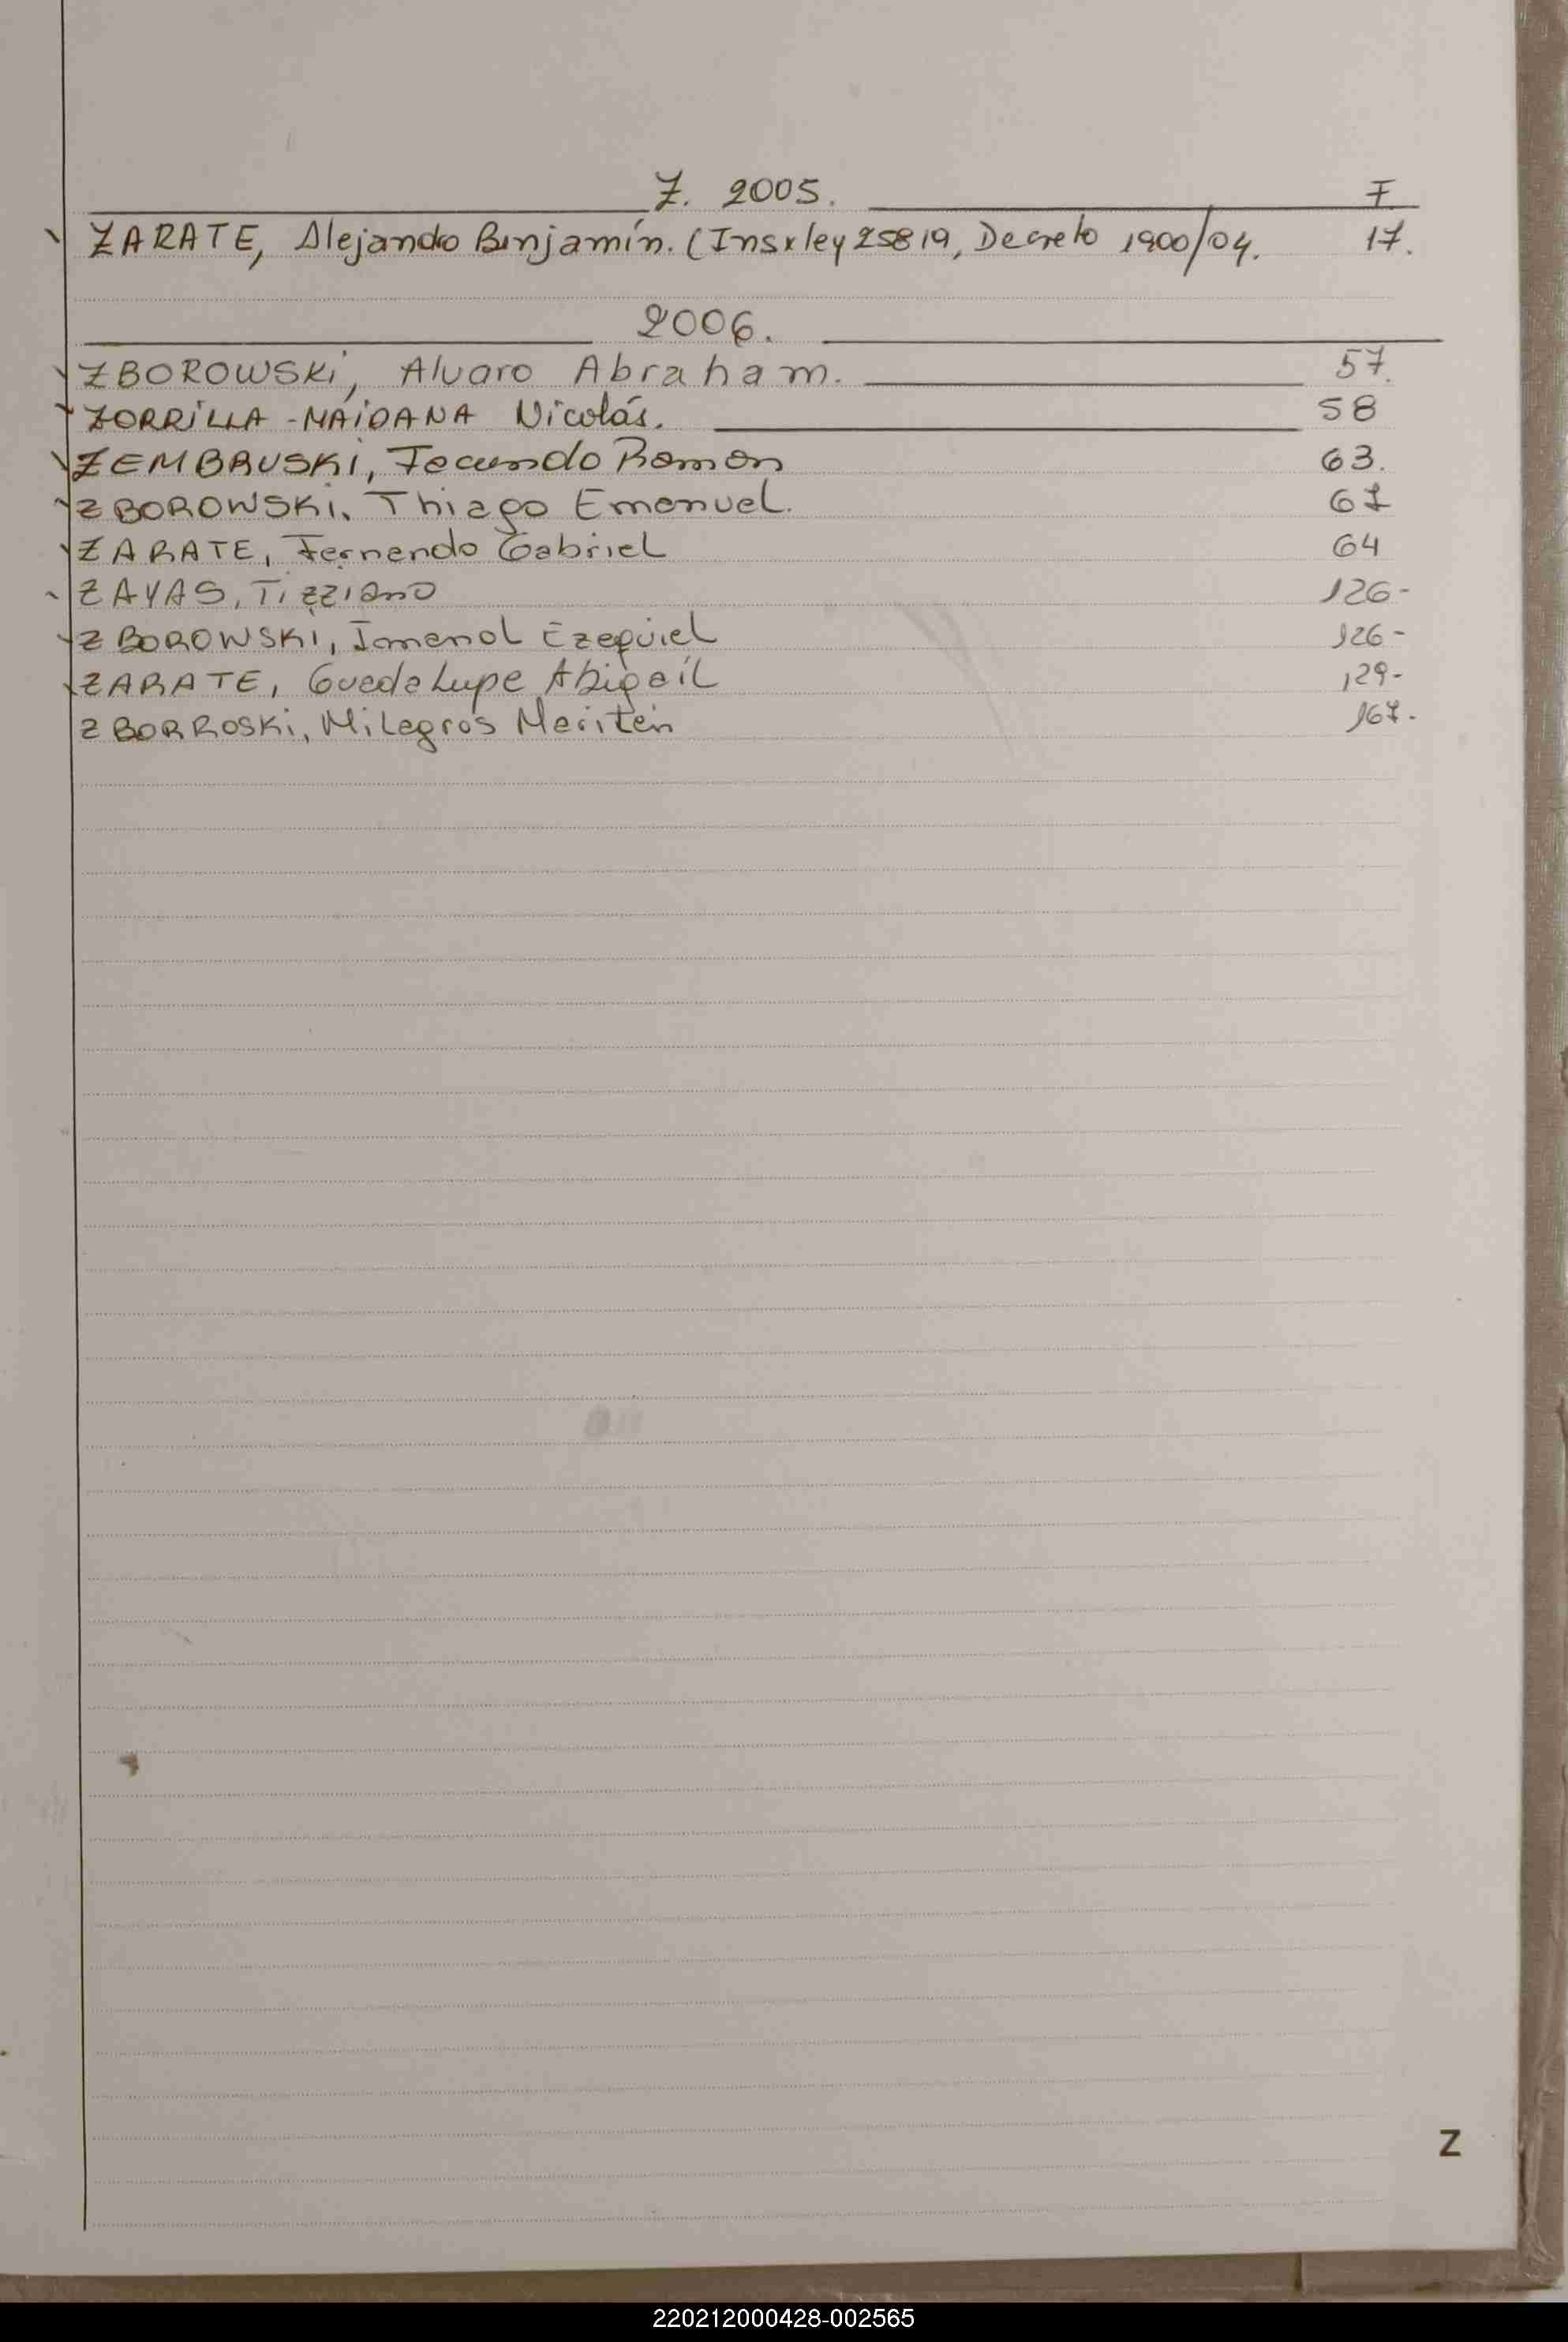 Z. 2005. F
ZARATE, Alejandro Benjamín. (Ins x ley 25819, Decreto 1900/04. 17.
2006.
ZBOROWSKi, Alvaro Abraham. 57.
ZORRiLLA - MAiDANA Nicolás. 58
ZEMBRUSKI, Facundo Ramon 63.
ZBOROWSKi, Thiago Emanuel. 67
ZARATE, Fernando Gabriel 64
ZAYAS, Tizziano 126-
ZBOROWSKI, Jamanol Ezequiel 126-
ZARATE, Guadalupe Abigaíl 129-
ZBORROSKi, Milagros 167.
Z
220212000428-002565